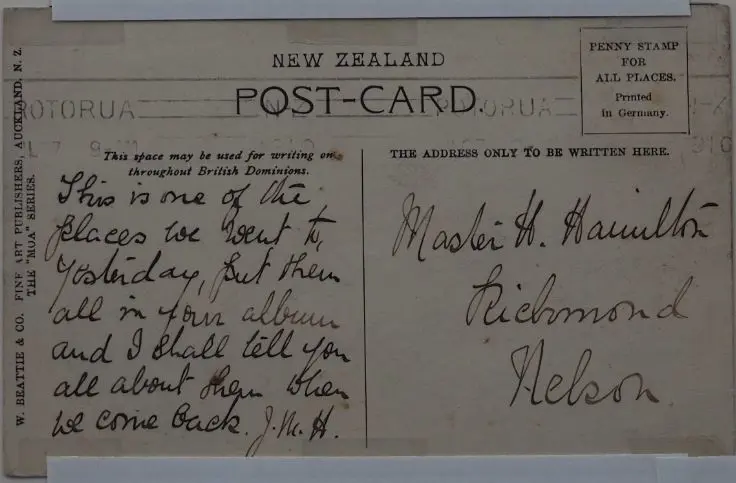 NEW ZEALAND
POST-CARD.
PENNY STAMP
FOR
ALL PLACES.
Printed
in Germany.
ROTORUA
ROTORUA
W. BEATTIE & CO. FINE ART PUBLISHERS, AUCKLAND, N. Z.
THE "MOA" SERIES.
This space may be used for writing on
throughout British Dominions.
This is one of the
places we went to,
yesterday, put them
all in your album
and I shall tell you
all about them when
we come back. J. M. H.
THE ADDRESS ONLY TO BE WRITTEN HERE.
Master H. Hamilton
Richmond
Nelson.